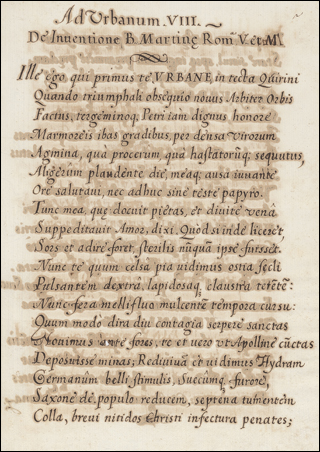 Ad Urbanum. VIII.
De Inventione B. Martinę Rom. V. et M.
Ille ego qui primus te VRBANE, in tecta Quirini
Quando triumphali obsequio nouus Arbiter Orbis
Factus, tergeminoq; Petri iam dignus honore
Marmoreis ibas gradibus, per densa virorum
Agmina, qua procerum qua hastatorūq; sequutus,
Aligerum plaudente die, meaq; ausa iuuante
Ore salutaui, nec adhuc sine teste papyro.
Tunc mea, que docuit piëtas, et diuite venâ
Suppeditauit Amor, dixi. Quod si inde liceret,
Sors et adire foret, sterilis nūquā ipse fuisset.
Nunc te quum celsa pia uidimus ostia sęcli
Pulsantem dextra, lapidosaq; claustra
Nunc fera mellifluo mulcente tempora cursu:
Quum modo dira diu contagia serpere sanctas
fores, te et uero ut Apolline cūctas
Deposuisse minas; Rediuiuā et uidimus Hydram
Germanûm belli stimulis, Suecūmq, furore,
Saxone de populo reducem, septena tumentem
Colla, brevi nitidos Christi infectura penates;